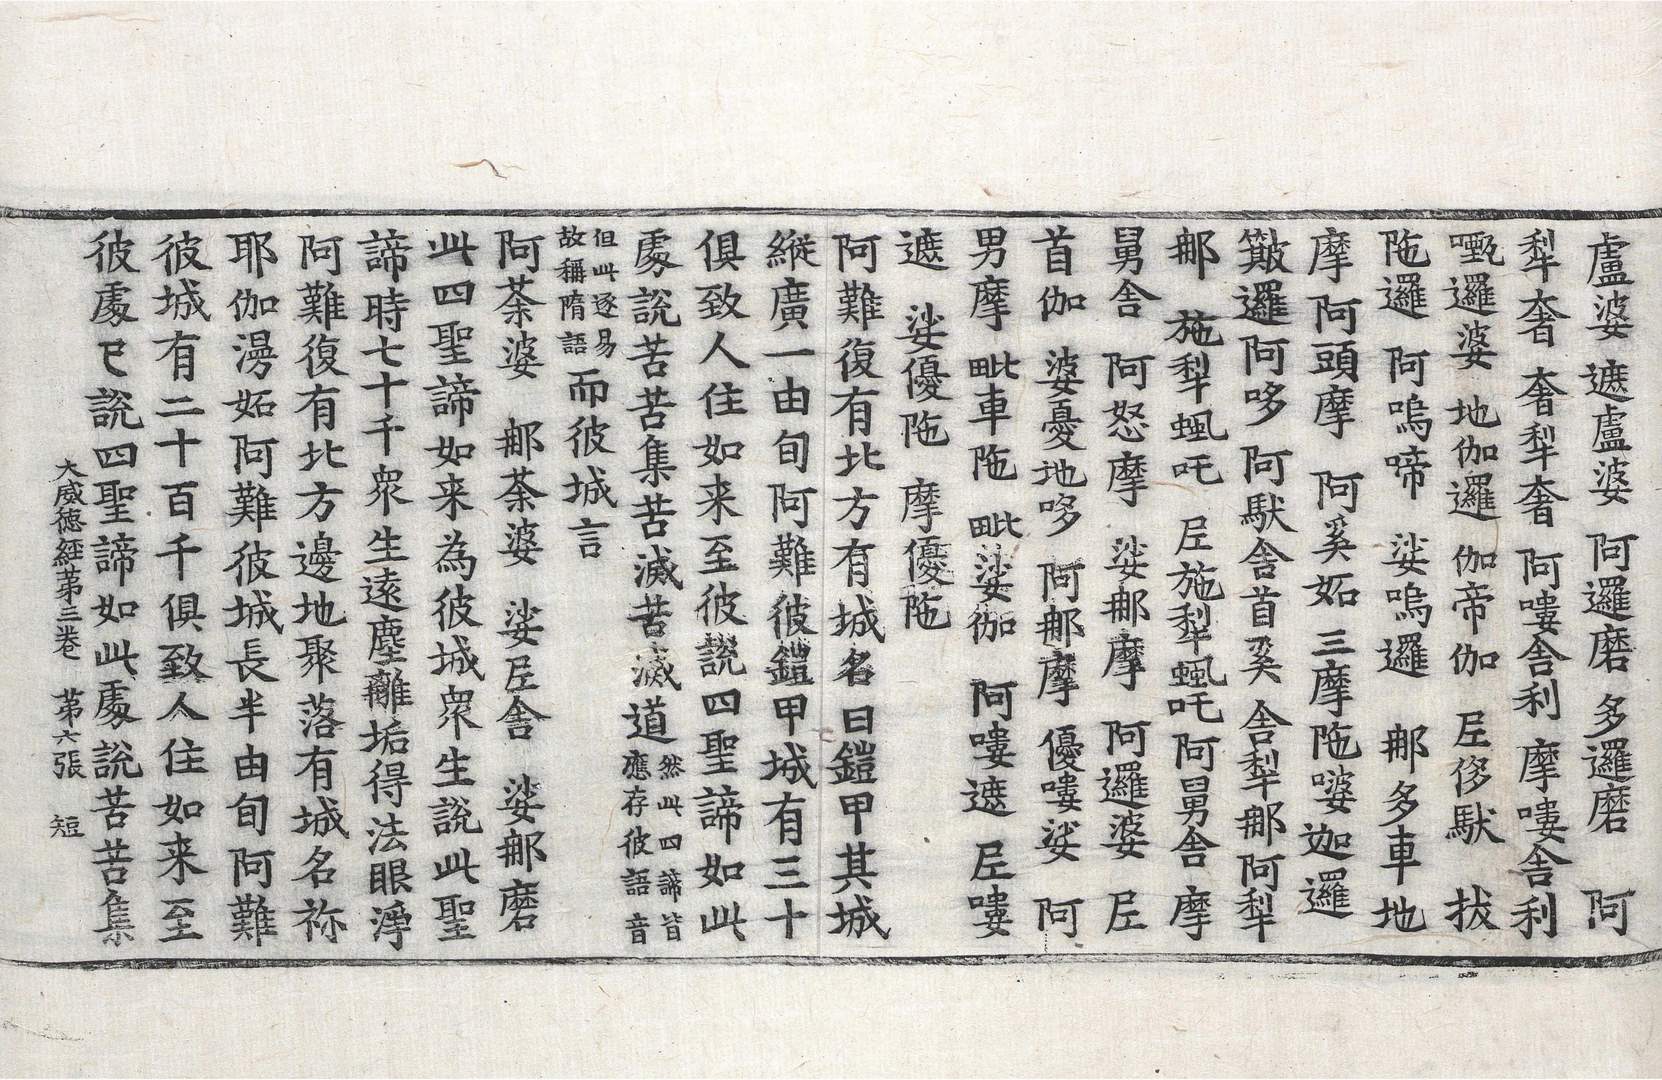 盧婆 遮盧婆 阿邏磨 多邏磨 阿
犁奢 奢犁奢 阿嘍舍利 摩嘍舍利
㖶邏婆 地伽邏 伽帝伽 𡰱侈䭾 拔
陁邏 阿嗚啼 娑嗚邏 𨚗多車地
摩 阿頭摩 阿奚妬 三摩陁㗑迦邏
簸邏阿哆 阿䭾舍首奚 舍犁𨚗阿犁
𨚗 施犁䗍吒 𡰱施犁䗍吒阿舅舍 摩
舅舍 阿怒摩 娑𨚗摩 阿邏婆 𡰱
首伽 婆憂地哆 阿𨚗摩 優嘍娑 阿
男摩 毗車陁 毗娑伽 阿嘍遮 𡰱嘍
遮 娑優陁 摩優陁
阿難復有北方有城名曰鎧甲其城
縱廣一由旬阿難彼鎧甲城有三十
俱致人住如来至彼說四聖諦如此
處說苦苦集苦滅苦滅道然此四諦皆應存彼語音
但此逐易故稱隋語而彼城言
阿荼婆 𨚗荼婆 娑𡰱舍 娑𨚗磨
此四聖諦如来為彼城衆生說此聖
諦時七十千衆生遠塵離垢得法眼淨
阿難復有北方邊地聚落有城名祢
耶伽漫妬阿難彼城長半由旬阿難
彼城有二十百千俱致人住如来至
彼處已說四聖諦如此處說苦苦集
大威德經第三卷 第六張 短